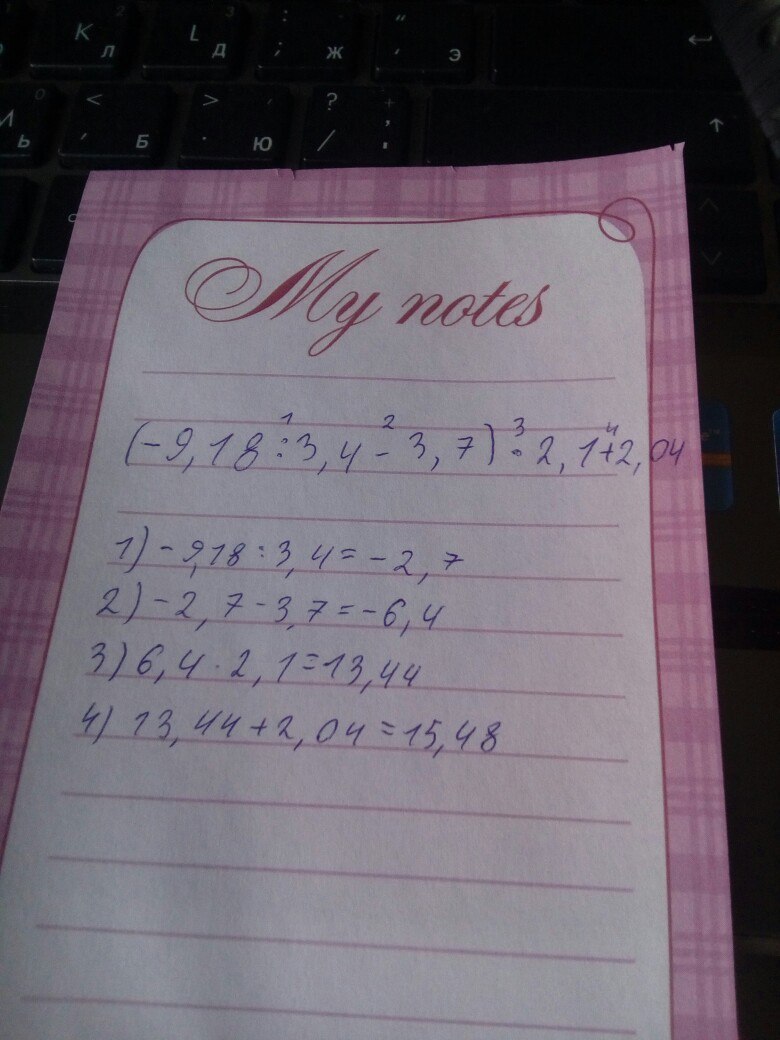 K 2 Л
L 3 Д
: ; Ж
" ' Э
←
И Ь 0
< , Б
> . Ю
? / + ;
↑
My notes
1 2 3 4
(-9,18:3,4-3,7)·2,1+2,04
1) -9,18:3,4=-2,7
2) -2,7-3,7=-6,4
3) 6,4·2,1=13,44
4) 13,44+2,04=15,48